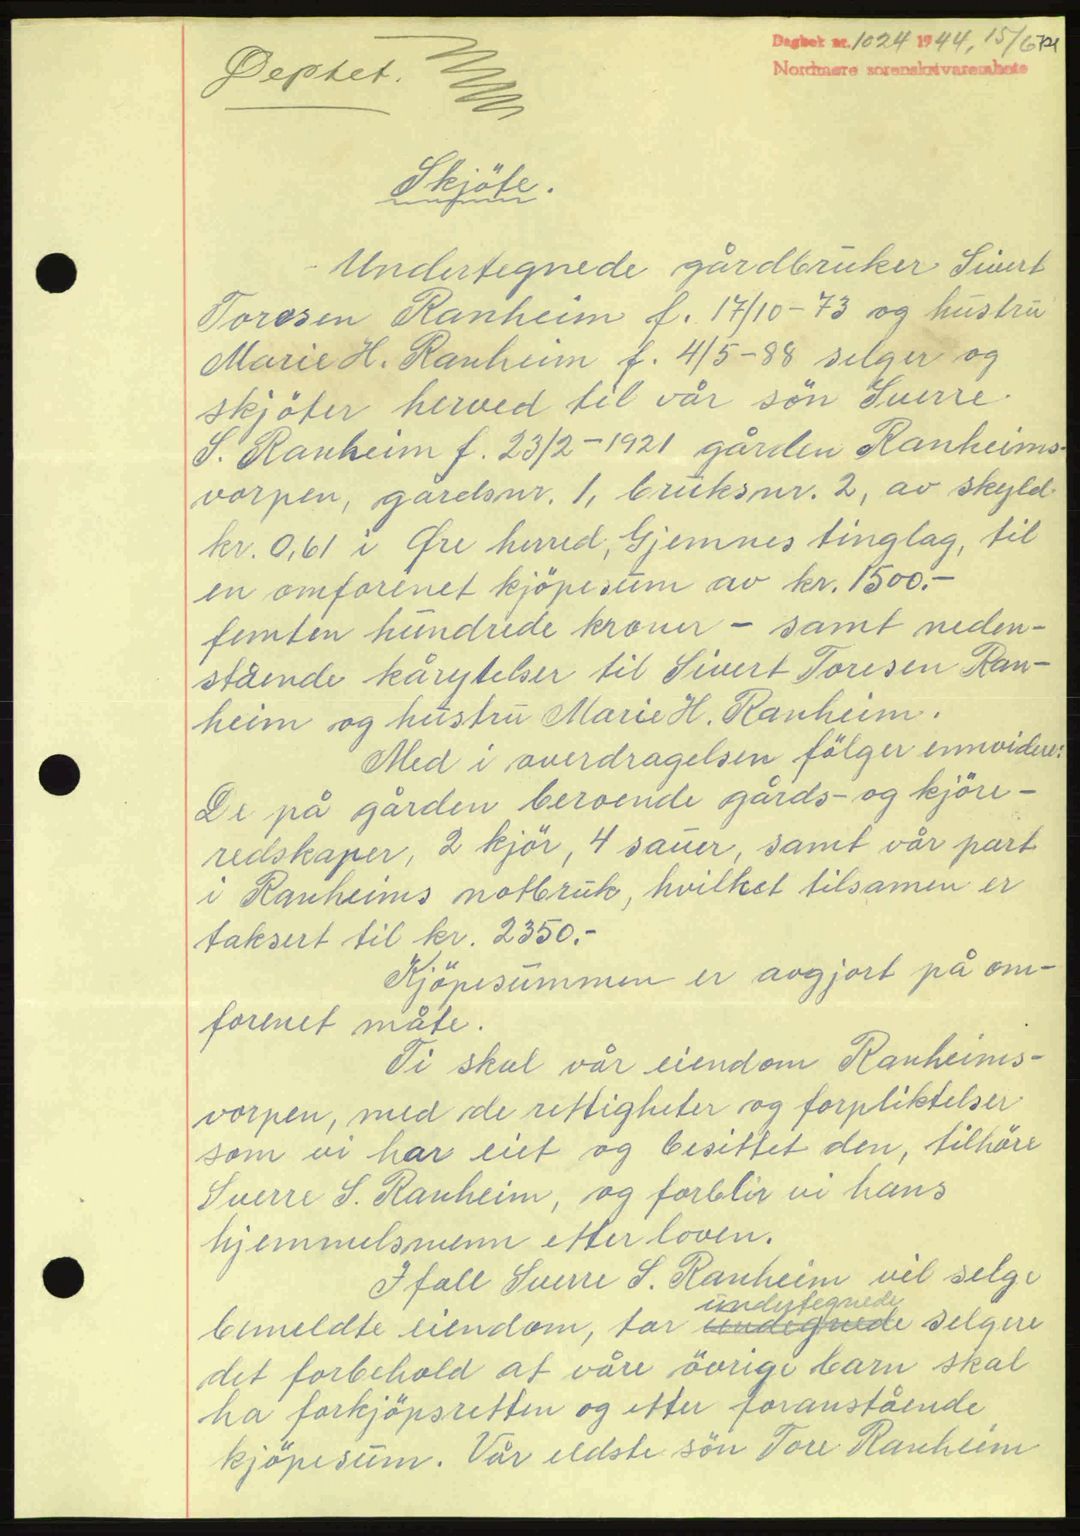 Dagbok nr. 1024 1944, 15/6
Nordmøre sorenskriverembete
Skjöte.
Undertegnede gårdbruker Sivert
Toresen Ranheim f. 17/10-73 og hustru
Marie H. Ranheim f. 4/5-88 selger og
skjöter herved til vår sön Sverre
S. Ranheim f. 23/2-1921 gården Ranheims-
vorpen, gårdsnr. 1, bruksnr. 2, av skyld
kr. 0,61 i Øre herred, Gjemnes tinglag, til
en omforenet kjöpesum av kr. 1500.-
femten hundrede kroner - samt neden-
stående kårytelser til Sivert Toresen Ran-
heim og hustru Marie H. Ranheim.
Med i overdragelsen fölger ennvidere:
De på gården beroende gårds- og kjöre-
redskaper, 2 kjör, 4 sauer, samt vår part
i Ranheims notbruk, hvilket tilsamen er
taksert til kr. 2350.-
Kjöpesummen er avgjort på om-
forenet måte.
Ti skal vår eiendom Ranheims-
vorpen, med de rettigheter og forpliktelser
som vi har eiet og besittet den, tilhöre
Sverre S. Ranheim, og forblir vi hans
hjemmelsmenn etter loven.
Ifall Sverre S. Ranheim vil selge
undertegnede
bemeldte eiendom, tar selgere
det forbehold at våre övrige barn skal
ha forkjöpsretten og etter foranstående
kjöpesum. Vår eldste sön Tore Ranheim